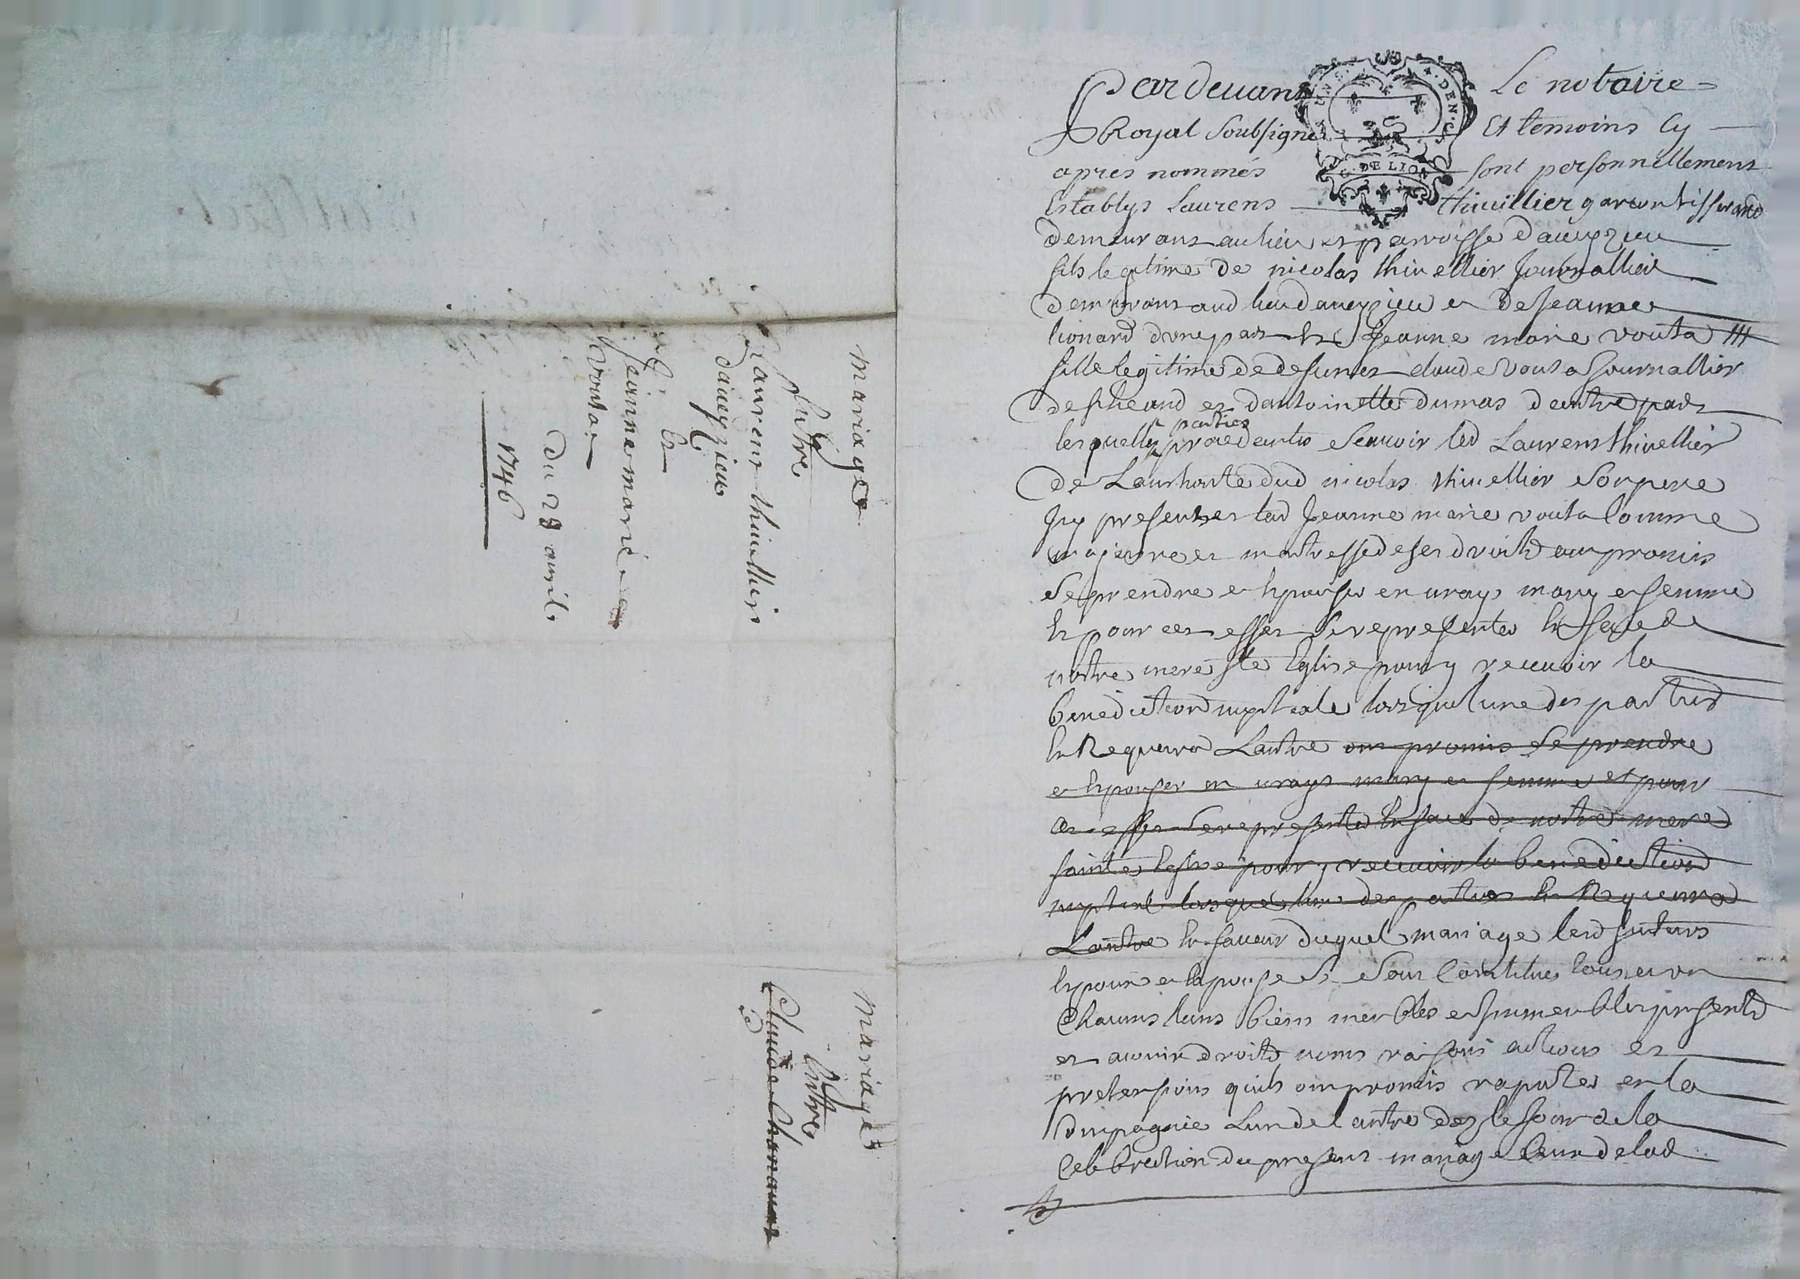 mariage
Entre
Laurent thivellier
daveyzieu
Et
Jeanne marie
vouta
du 28 avril
1746
mariage
Entre
Claude
Pardevant Le notaire
Royal soubsigné Et temoins Cy
apres nommés sont personnellement
Establys Laurens thivillier garcon tisserand
demeurant au lieu et parroisse daveyzieu
fils legitime de nicolas thivellier Journallier
demeurant aud lieu daveyzieu et de Jeanne
lionard dune part Et Jeanne marie vouta
fille legitime de defunt claude vouta Journallier
et dantoinette dumas dautre part
lesquelles parties procedentes scavoir led Laurens thivellier
de Lauthorité dud nicolas thivellier son pere
Icy present et lad Jeanne marie vouta Comme
majeure et maitresse de ses droits ont promis
se prendre et Epouser en vrays mary et femme
Et pour cet effet se representer En face de
notre mere ste Eglise pour y recevoir la
benediction nuptiale lorsque lune des parties
En Requerra Lautre ont promis se prendre
et Epouser en vrays mary et femme et pour
cet effet se representer En face de notre mere
sainte Eglise pour y recevoir la benediction
nuptial lorsque lune des parties En Requerra
Lautre En faveur duquel mariage lesd futurs
Epoux et Epouse se sont Constitués tous et un
Chacuns leurs biens meubles et Immeubles presents
et avenir droits noms raisons actions et
pretensions quils ont promis raporter en la
Compagnie Lun de Lautre des le Jour de la
Celebration du present mariage
DE LION